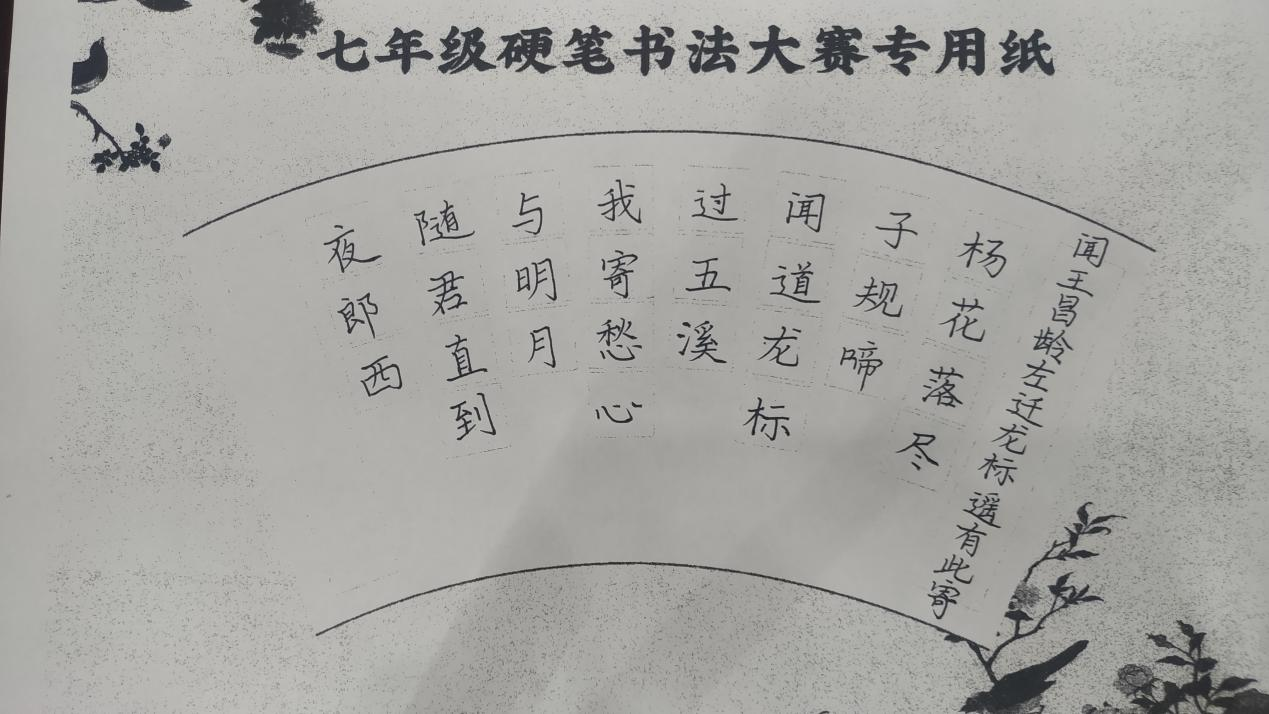 七年级硬笔书法大赛专用纸
闻王昌龄左迁龙标遥有此寄
杨花落尽
子规啼
闻道龙标
过五溪
我寄愁心
与明月
随君直到
夜郎西